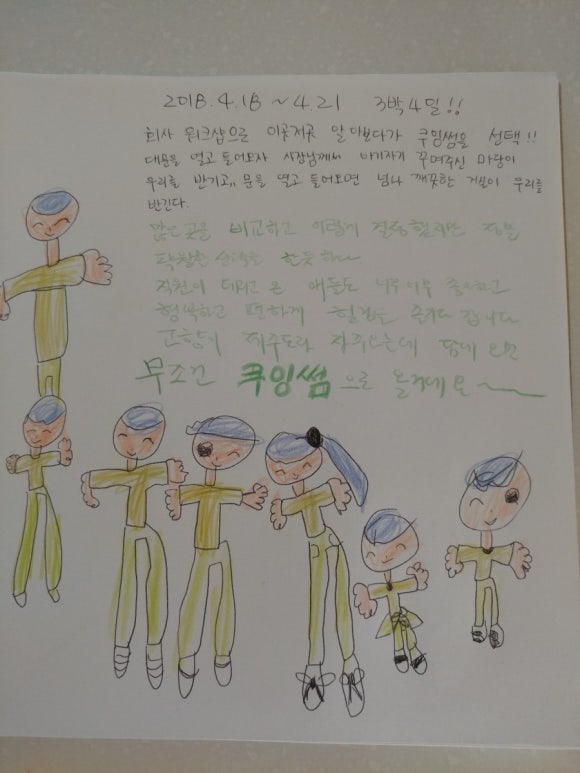 2018.4.18 ~ 4.21 3박4일!!
회사 워크샵으로 이곳저곳 알아보다가 쿠잉썸을 선택!!
대문을 열고 들어오자 사장님께서 아기자기 꾸며주신 마당이
우리를 반기고,, 문을 열고 들어오면 넘나 깨끗한 거실이 우리를
반긴다.
많은 곳을 비교하고 이렇게 결정했지만 정말
탁월한 선택을 한듯 하다
직원이 데리고 온 애들도 너무너무 좋아하고
행복하고 편하게 힐링을 즐기다 갑니다
고향이 제주도라 자주오는데 담에 오면
무조건 쿠잉썸으로 올거에요~